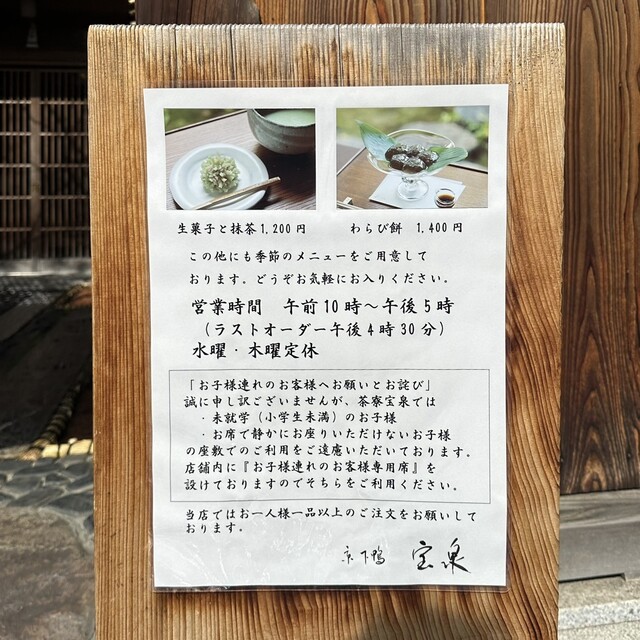 生菓子と抹茶1,200円
わらび餅 1,400円
この他にも季節のメニューをご用意して
おります。どうぞお気軽にお入りください。
営業時間 午前10時～午後5時
（ラストオーダー午後4時30分）
水曜・木曜定休
「お子様連れのお客様へお願いとお詫び」
誠に申し訳ございませんが、茶寮宝泉では
・未就学（小学生未満）のお子様
・お席で静かにお座りいただけないお子様
の座敷でのご利用をご遠慮いただいております。
店舗内に『お子様連れのお客様専用席』を
設けておりますのでそちらをご利用ください。
当店ではお一人様一品以上のご注文をお願いして
おります。
京下鴨 宝泉